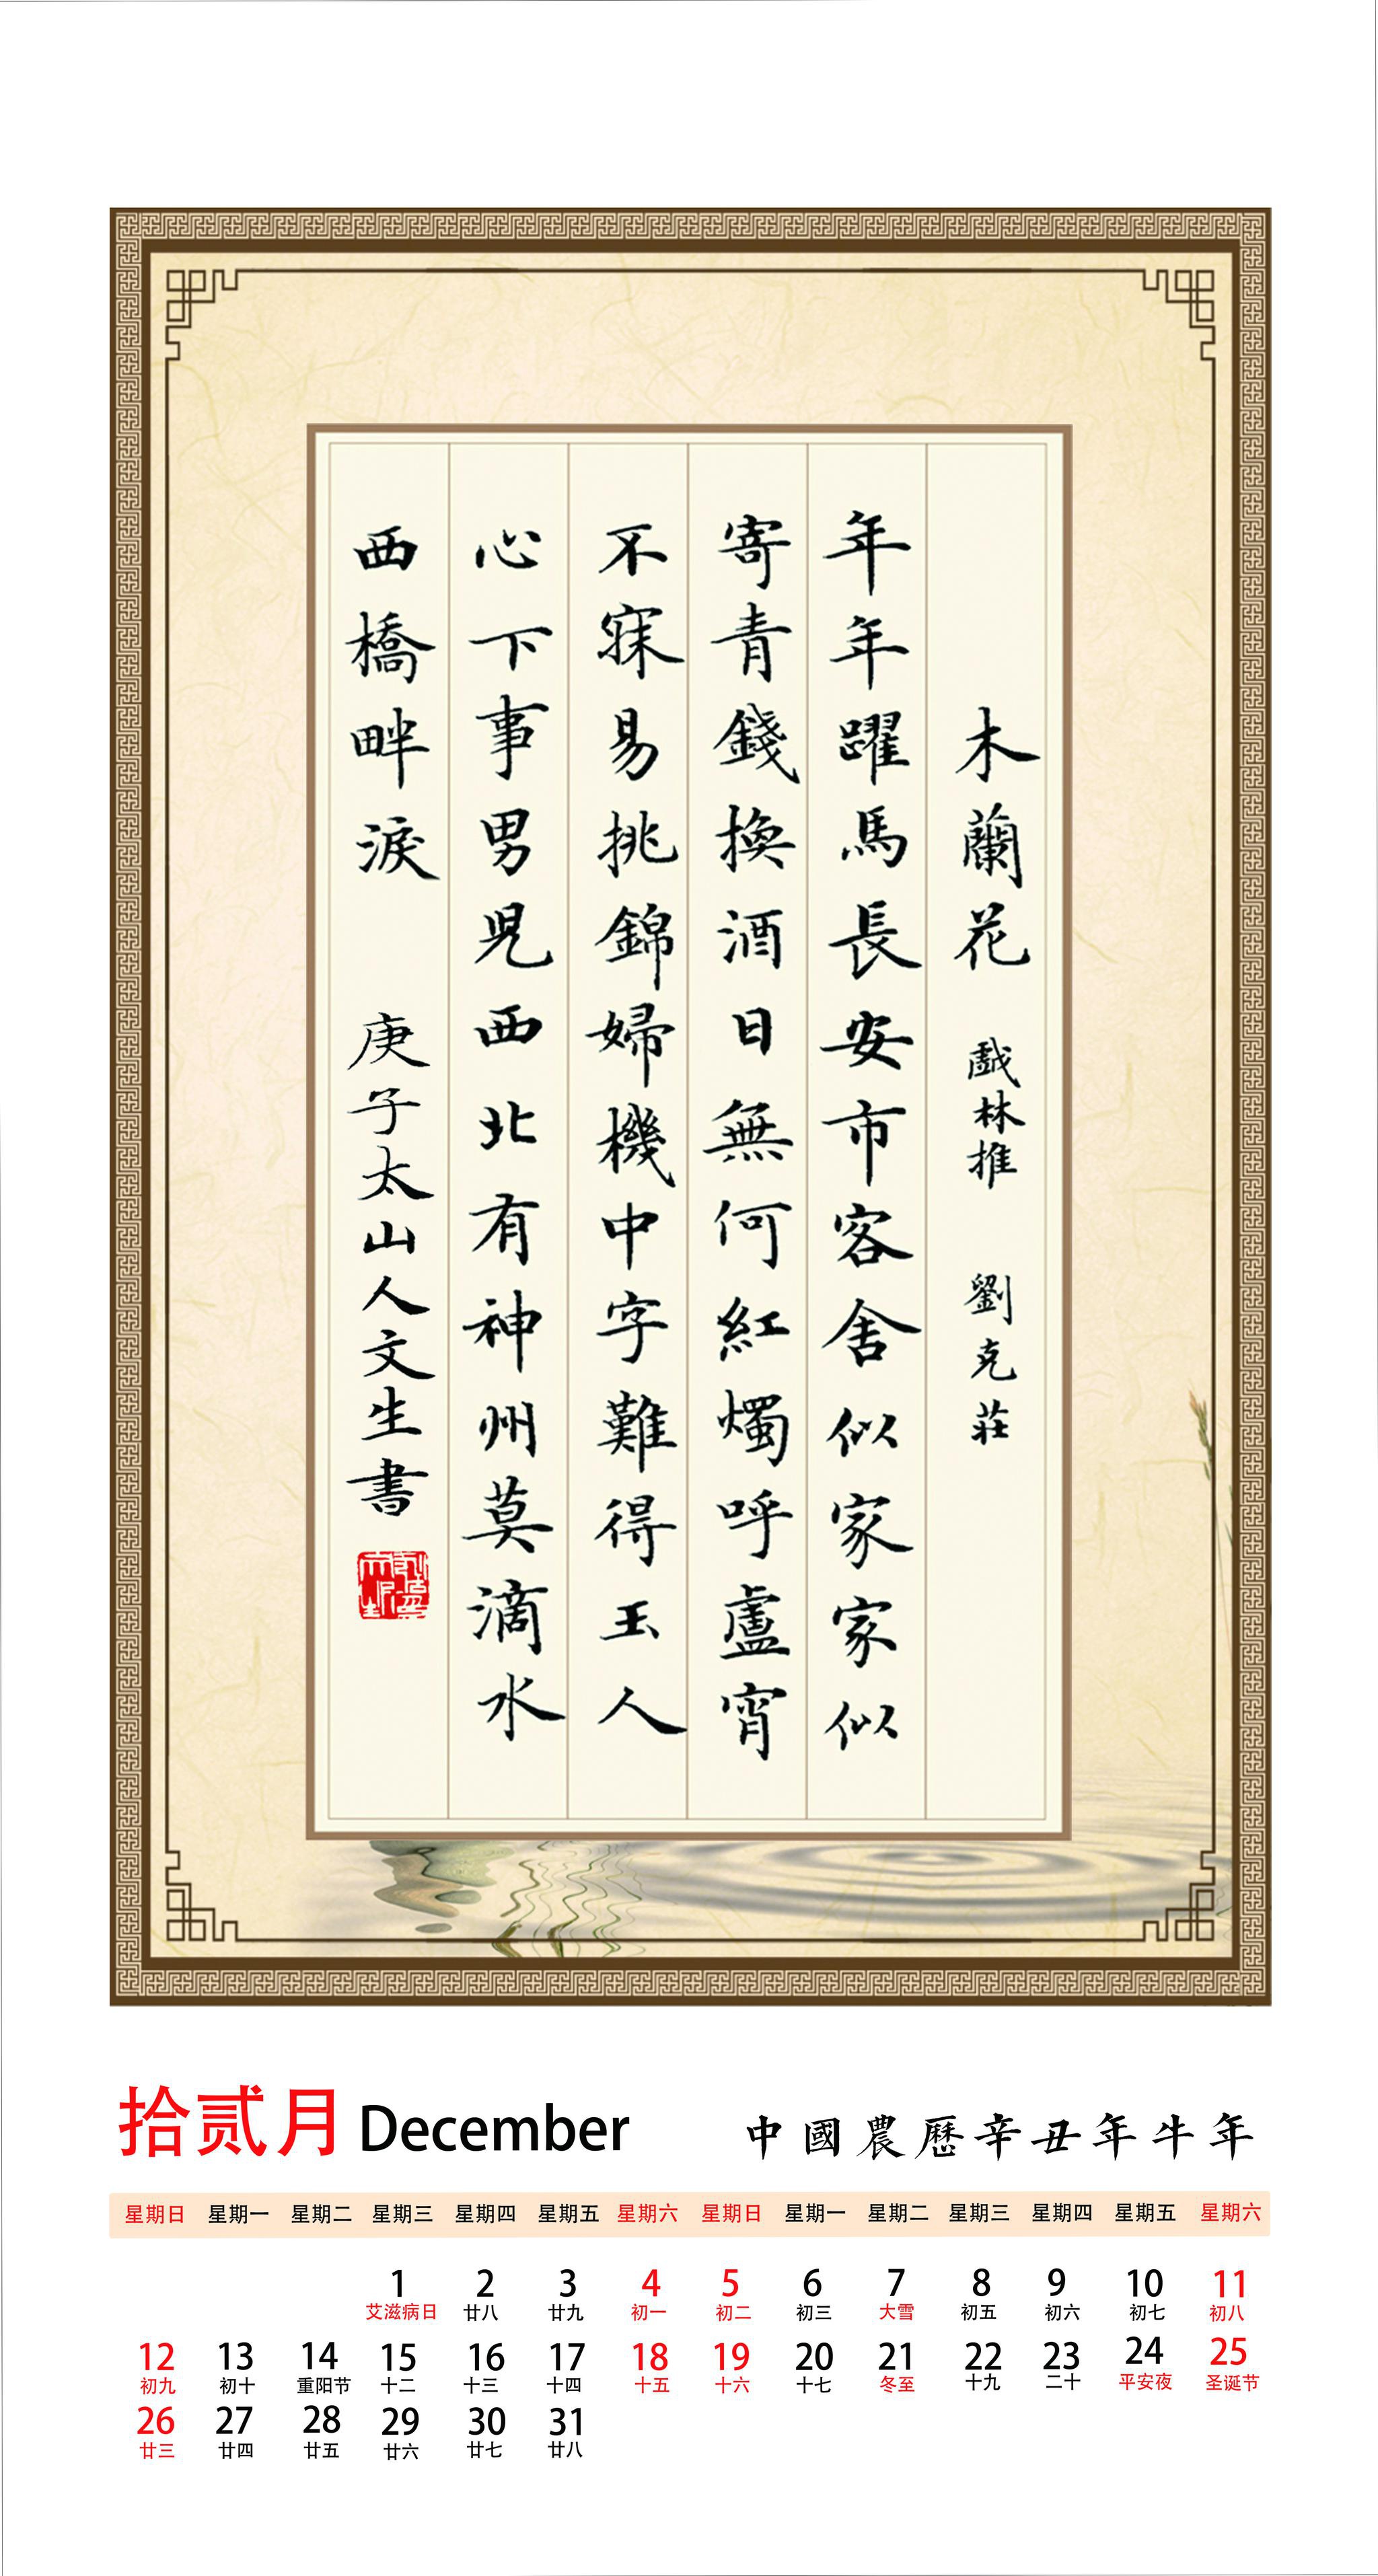 木蘭花 戲林推 劉克莊
年年躍馬長安市客舍似家家似
寄青錢換酒日無何紅燭呼盧宵
不寐易挑錦婦機中字難得玉人
心下事男兒西北有神州莫滴水
西橋畔淚 庚子太山人文生書
拾贰月 December 中國農歷辛丑年牛年
星期日 星期一 星期二 星期三 星期四 星期五 星期六 星期日 星期一 星期二 星期三 星期四 星期五 星期六
1 2 3 4 5 6 7 8 9 10 11
艾滋病日 廿八 廿九 初一 初二 初三 大雪 初五 初六 初七 初八
12 13 14 15 16 17 18 19 20 21 22 23 24 25
初九 初十 重阳节 十二 十三 十四 十五 十六 十七 冬至 十九 二十 平安夜 圣诞节
26 27 28 29 30 31
廿三 廿四 廿五 廿六 廿七 廿八